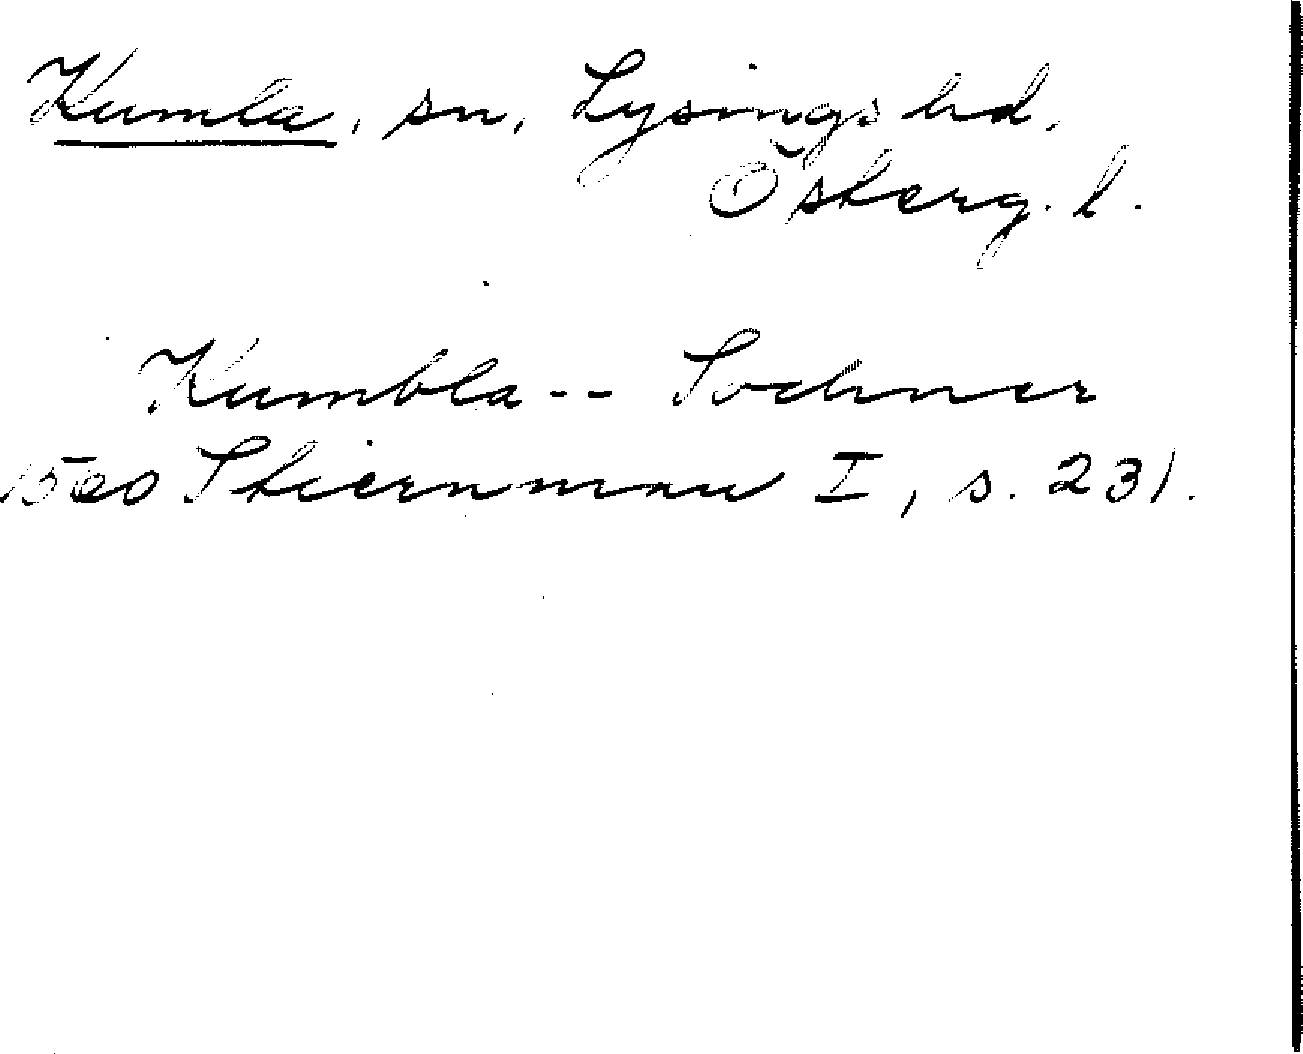 Kumla, sn, Lysings hd,
Österg. l.
Kumbla -- Sochner
1560 Stiernman I, s. 231.